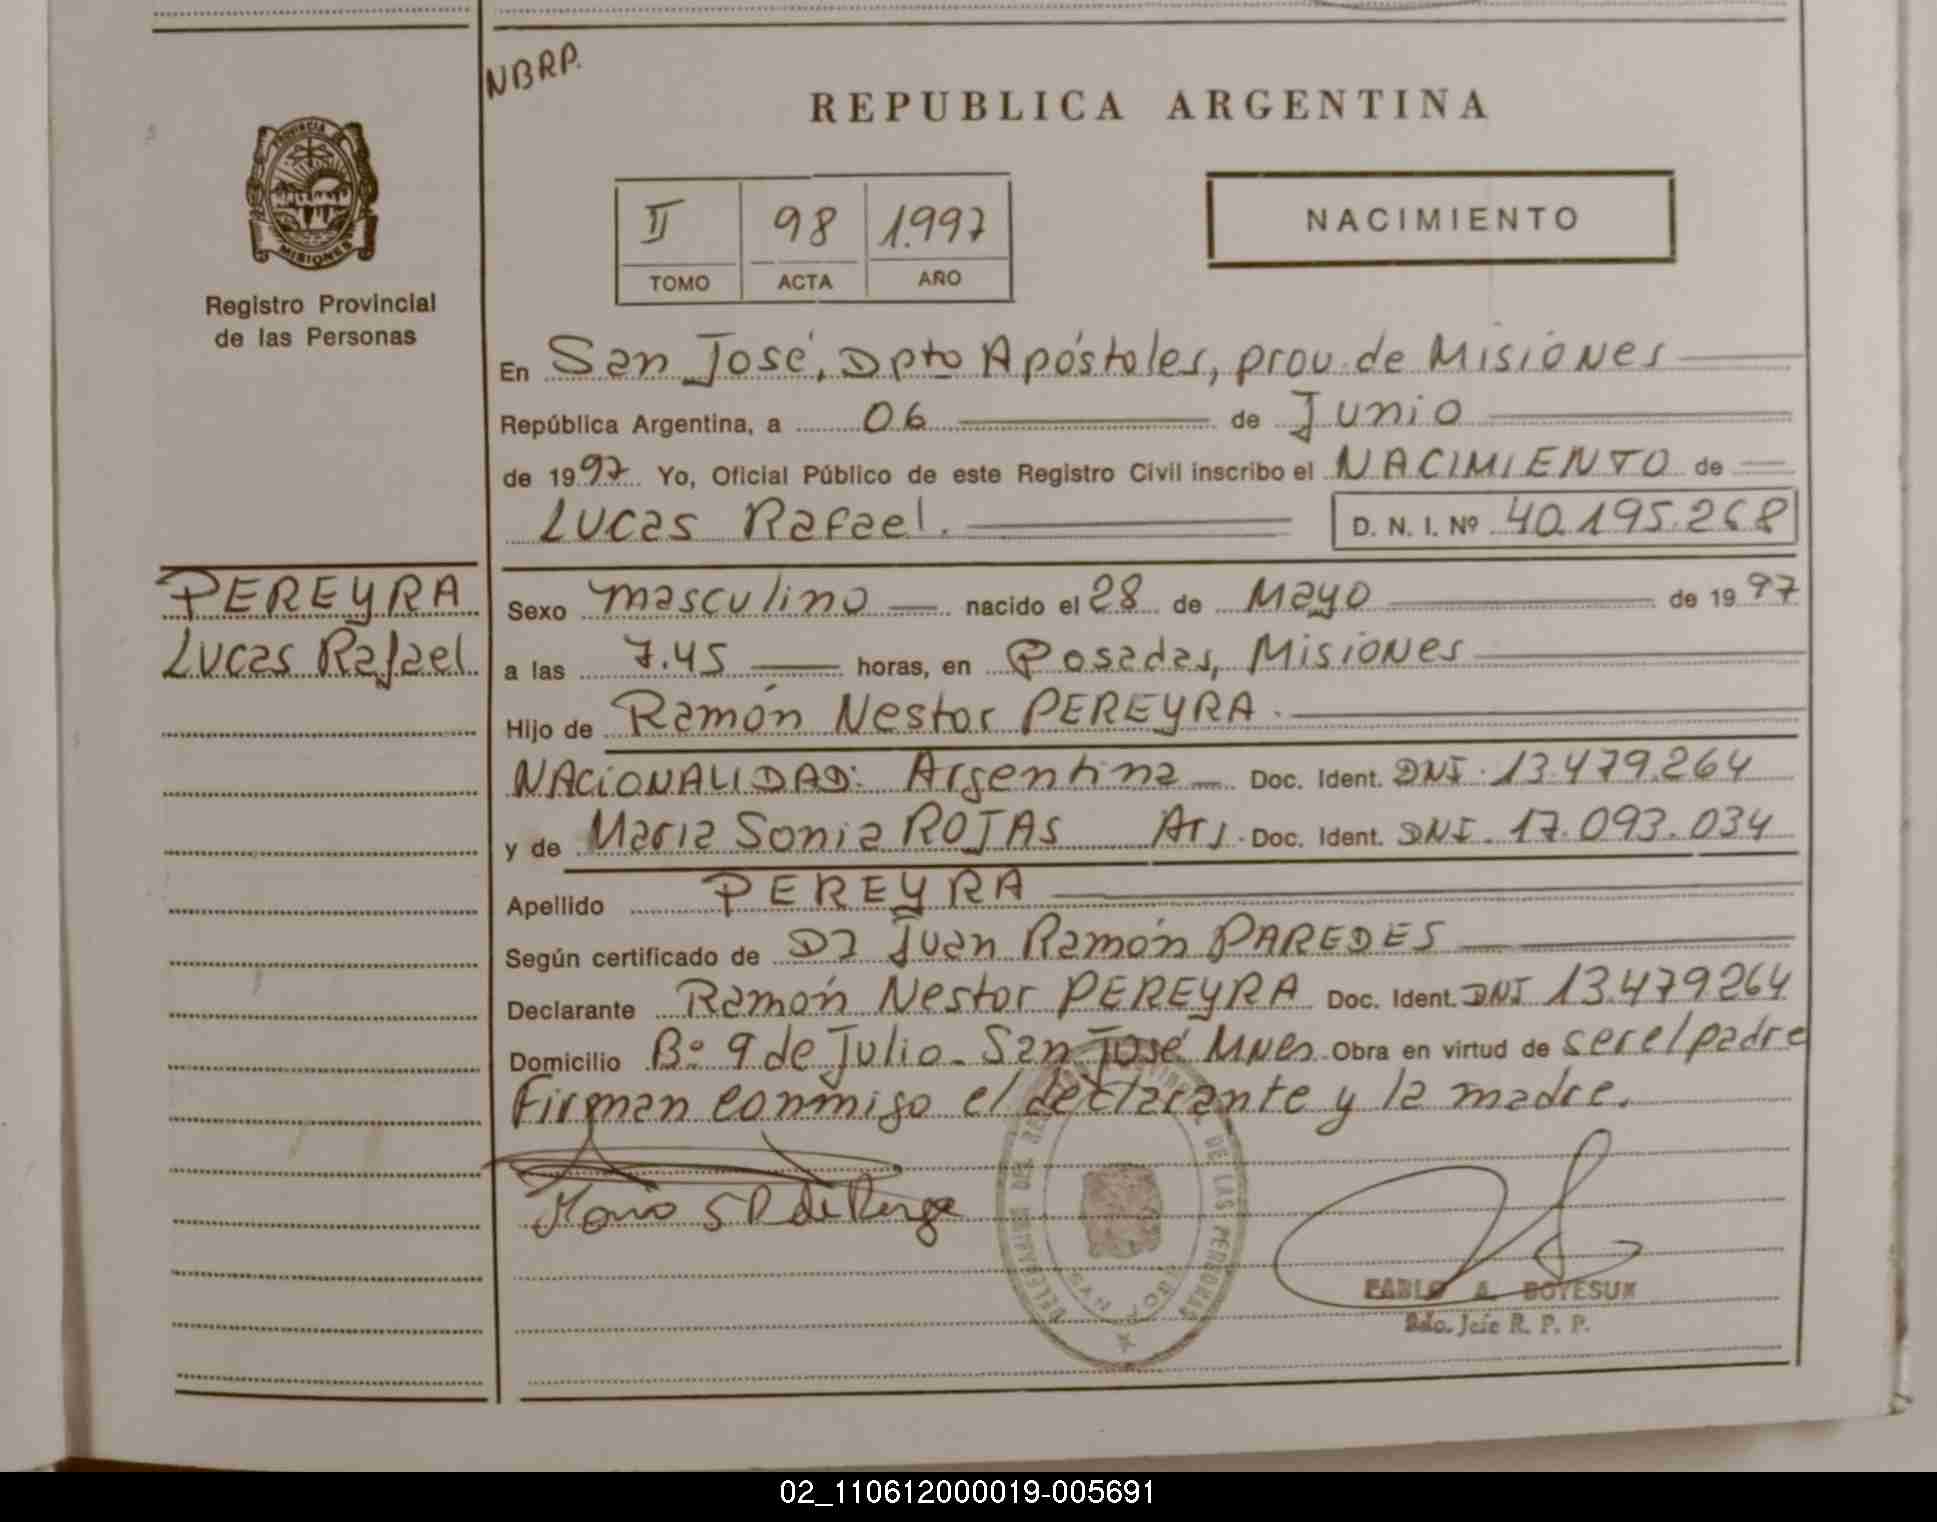 NBRP.
REPUBLICA ARGENTINA
PROVINCIA DE
MISIONES
Registro Provincial
de las Personas
II 98 1.997
TOMO ACTA AÑO
NACIMIENTO
En San José, Dpto Apóstoles, prov. de Misiones
República Argentina, a 06 de Junio
de 1997 Yo, Oficial Público de este Registro Civil inscribo el NACIMIENTO de
Lucas Rafael. D. N. I. Nº 40.195.268
PEREYRA
Lucas Rafael
Sexo masculino nacido el 28 de Mayo de 1997
a las 7.45 horas, en Posadas, Misiones
Hijo de Ramón Nestor PEREYRA.
NACIONALIDAD: Argentina Doc. Ident. DNI. 13.479.264
y de Maria Sonia ROJAS Arg. Doc. Ident. DNI. 17.093.034
Apellido PEREYRA
Según certificado de Dr Juan Ramón PAREDES
Declarante Ramón Nestor PEREYRA Doc. Ident. DNI 13.479264
Domicilio Bº 9 de Julio. San José Mnes. Obra en virtud de ser el padre
Firman conmigo el declarante y la madre.
DELEGACION DEL REGISTRO PROVINCIAL DE LAS PERSONAS
SAN JOSE
PABLO A.
R. P. P.
02_110612000019-005691